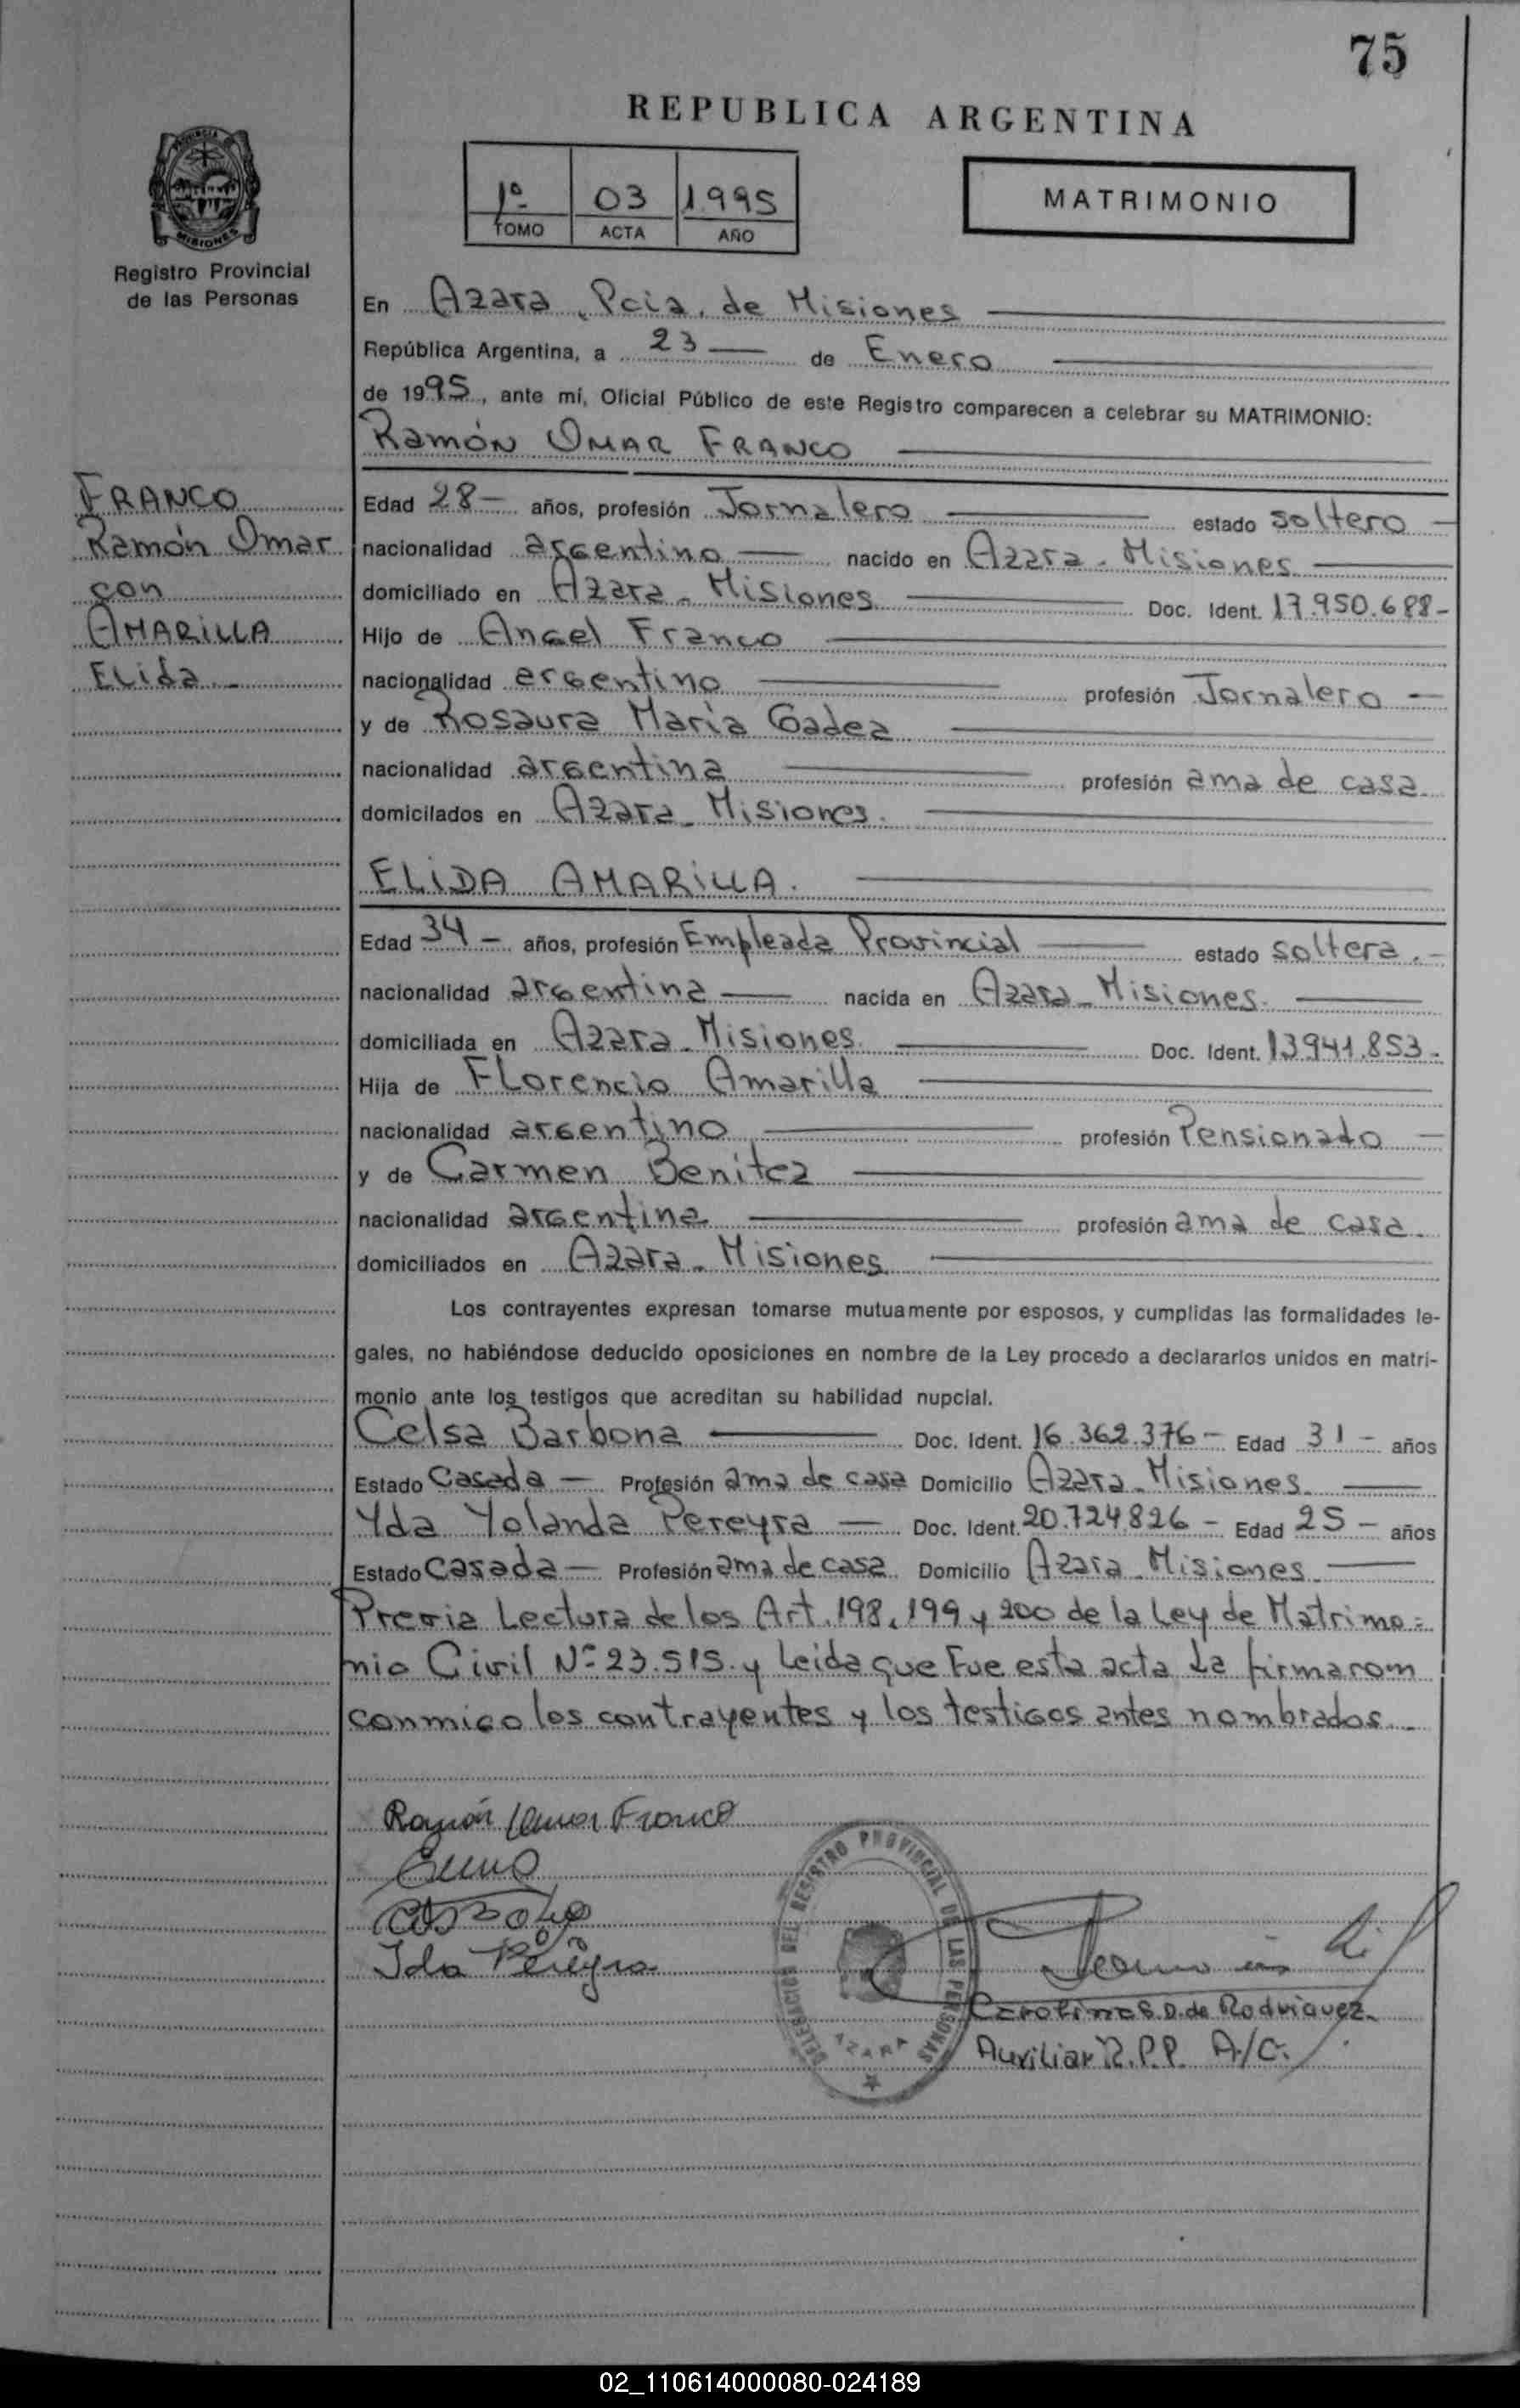 75
REPUBLICA ARGENTINA
1º 03 1995
TOMO ACTA AÑO
MATRIMONIO
PROVINCIA
MISIONES
Registro Provincial
de las Personas
En Azara, Pcia. de Misiones
República Argentina, a 23 de Enero
de 1995, ante mí, Oficial Público de este Registro comparecen a celebrar su MATRIMONIO:
Ramón OMAR FRANCO
FRANCO
Ramón Omar
con
AMARILLA
ELida
Edad 28 años, profesión Jornalero estado soltero
nacionalidad argentino nacido en Azara - Misiones
domiciliado en Azara - Misiones Doc. Ident. 17.950.688-
Hijo de Angel Franco
nacionalidad argentino profesión Jornalero
y de Rosaura María Gadea
nacionalidad argentina profesión ama de casa
domicilados en Azara - Misiones.
ELIDA AMARILLA.
Edad 34 - años, profesión Empleada Provincial estado soltera.-
nacionalidad argentina nacida en Azara - Misiones.
domiciliada en Azara - Misiones. Doc. Ident. 13.941.853.
Hija de Florencio Amarilla
nacionalidad argentino profesión Pensionado
y de Carmen Benitez
nacionalidad argentina profesión ama de casa.
domiciliados en Azara - Misiones
Los contrayentes expresan tomarse mutuamente por esposos, y cumplidas las formalidades le-
gales, no habiéndose deducido oposiciones en nombre de la Ley procedo a declararlos unidos en matri-
monio ante los testigos que acreditan su habilidad nupcial.
Celsa Barbona Doc. Ident. 16.362.376 - Edad 31 - años
Estado Casada - Profesión ama de casa Domicilio Azara - Misiones
Yda Yolanda Pereyra - Doc. Ident. 20.724.826 - Edad 25 - años
Estado Casada - Profesión ama de casa. Domicilio Azara - Misiones.
Previa Lectura de los Art. 198, 199 y 200 de la Ley de Matrimo=
nio Civil Nº 23.515. y leida que Fue esta acta la firmarom
conmigo los contrayentes y los testigos antes nombrados
Ramón Omar Franco
Ida Pereyra
DELEGACION DEL REGISTRO PROVINCIAL DE LAS PERSONAS
AZARA
Carolina S.D. de Rodriguez
Auxiliar R.P.P. A/C.
02_110614000080-024189